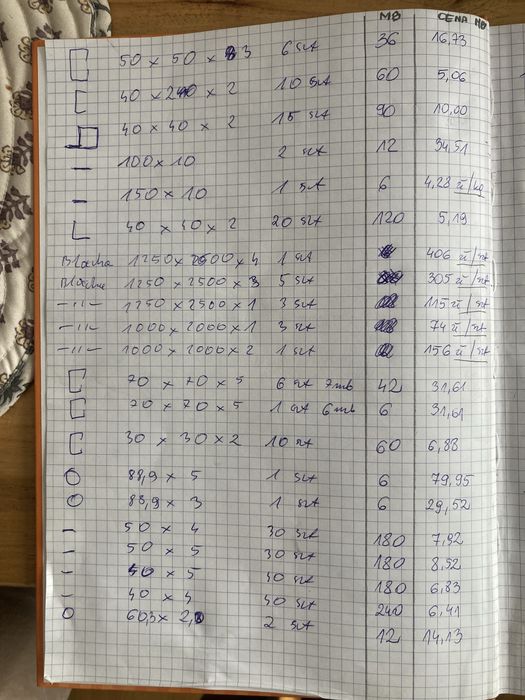 MB CENA MB
50 x 50 x 3 6 szt 36 16,73
40 x 20 x 2 10 szt 60 5,06
40 x 40 x 2 15 szt 90 10,00
100 x 10 2 szt 12 34,51
150 x 10 1 szt 6 4,28 zł/kg
40 x 40 x 2 20 szt 120 5,19
Blacha 1250 x 2500 x 4 1 szt 406 zł/szt
Blacha 1250 x 2500 x 3 5 szt 305 zł/szt
—"— 1250 x 2500 x 1 3 szt 115 zł/szt
—"— 1000 x 2000 x 1 3 szt 74 zł/szt
—"— 1000 x 2000 x 2 1 szt 156 zł/szt
70 x 70 x 5 6 szt 7mb 42 31,61
70 x 70 x 5 1 szt 6mb 6 31,61
30 x 30 x 2 10 szt 60 6,88
88,9 x 5 1 szt 6 79,95
88,9 x 3 1 szt 6 29,52
50 x 4 30 szt 180 7,92
50 x 5 30 szt 180 8,52
40 x 5 30 szt 180 6,83
40 x 4 40 szt 240 6,41
60,3 x 2,8 2 szt 12 14,13